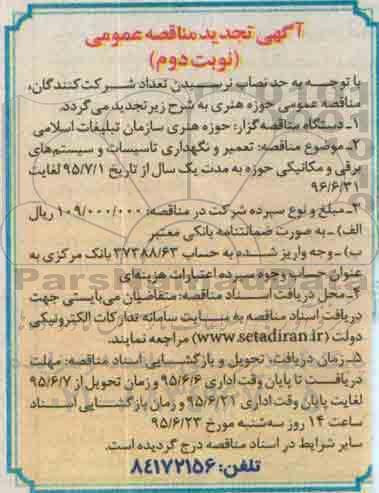 آگهی تجدید مناقصه عمومی
(نوبت دوم)
با توجه به حد نصاب نرسیدن تعداد شرکت‌کنندگان،
مناقصه عمومی حوزه هنری به شرح زیر تجدید می گردد.
1ـ دستگاه مناقصه‌گزار: حوزه هنری سازمان تبلیغات اسلامی
2ـ موضوع مناقصه: تعمیر و نگهداری تاسیسات و سیستم‌های
برقی و مکانیکی حوزه به مدت یک سال از تاریخ 95/7/1 لغایت
96/6/31
3ـ مبلغ و نوع سپرده شرکت در مناقصه: 109/000/000 ریال
الف) ـ به صورت ضمانتنامه بانکی معتبر
ب) ـ وجه واریز شده به حساب 37388/63 بانک مرکزی به
عنوان حساب وجوه سپرده اعتبارات هزینه‌ای
4ـ محل دریافت اسناد مناقصه: متقاضیان می‌بایستی جهت
دریافت اسناد مناقصه به سایت سامانه تدارکات الکترونیکی
دولت (www.setadiran.ir) مراجعه نمایند.
5ـ زمان دریافت، تحویل و بازگشایی اسناد مناقصه: مهلت
دریافت تا پایان وقت اداری 95/6/6 و زمان تحویل از 95/6/7
لغایت پایان وقت اداری 95/6/21 و زمان بازگشایی اسناد
ساعت 14 روز سه‌شنبه مورخ 95/6/23
سایر شرایط در اسناد مناقصه درج گردیده است.
تلفن: 84172156
ParsNamadData